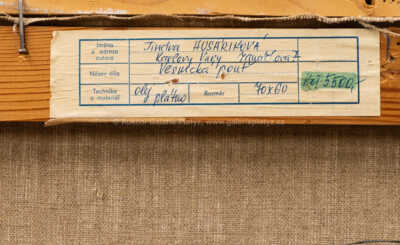 Jméno a adresa autora
Jindra HUSAŘÍKOVÁ
Karlovy Vary
Název díla
Vesnická pouť
Technika a materiál
olej plátno
Rozměr
70x60
Kčs 5500,-